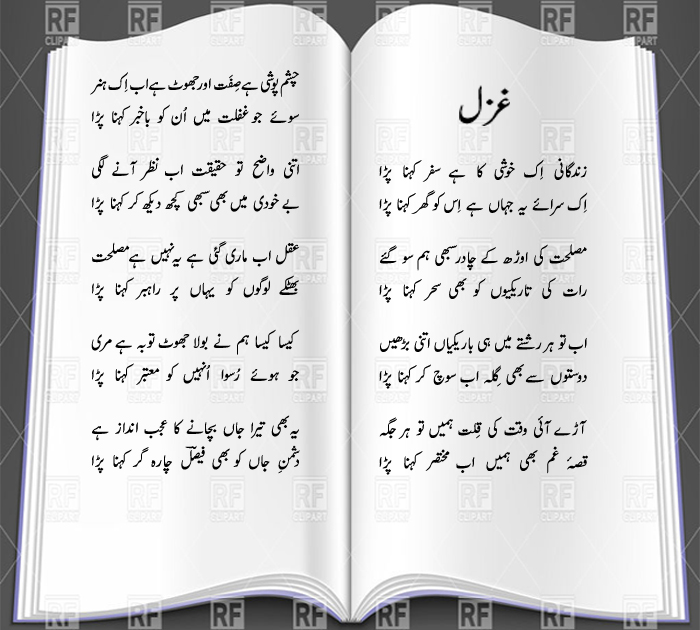 غزل
زندگانی اِک خوشی کا ہے سفر کہنا پڑا
اِک سرائے یہ جہاں ہے اِس کو گھر کہنا پڑا
مصلحت کی اوڑھ کے چادر سبھی ہم سو گئے
رات کی تاریکیوں کو بھی سحر کہنا پڑا
اب تو ہر رشتے میں ہی باریکیاں اتنی بڑھیں
دوستوں سے بھی گِلہ اب سوچ کر کہنا پڑا
آڑے آئی وقت کی قِلت ہمیں تو ہر جگہ
قصۂ غم بھی ہمیں اب مختصر کہنا پڑا
چشم پوشی ہے صِفَت اور جھوٹ ہے اب اِک ہنر
سوئے جو غفلت میں اُن کو باخبر کہنا پڑا
اتنی واضح تو حقیقت اب نظر آنے لگی
بے خودی میں بھی سبھی کچھ دیکھ کر کہنا پڑا
عقل اب ماری گئی ہے یہ نہیں ہے مصلحت
بھٹکے لوگوں کو یہاں پر راہبر کہنا پڑا
کیسا کیسا ہم نے بولا جھوٹ توبہ ہے مری
جو ہوئے رُسوا اُنہیں کو معتبر کہنا پڑا
یہ بھی تیرا جاں بچانے کا عجب انداز ہے
دشمنِ جاں کو بھی فیصلؔ چارہ گر کہنا پڑا
RF
CLIPART